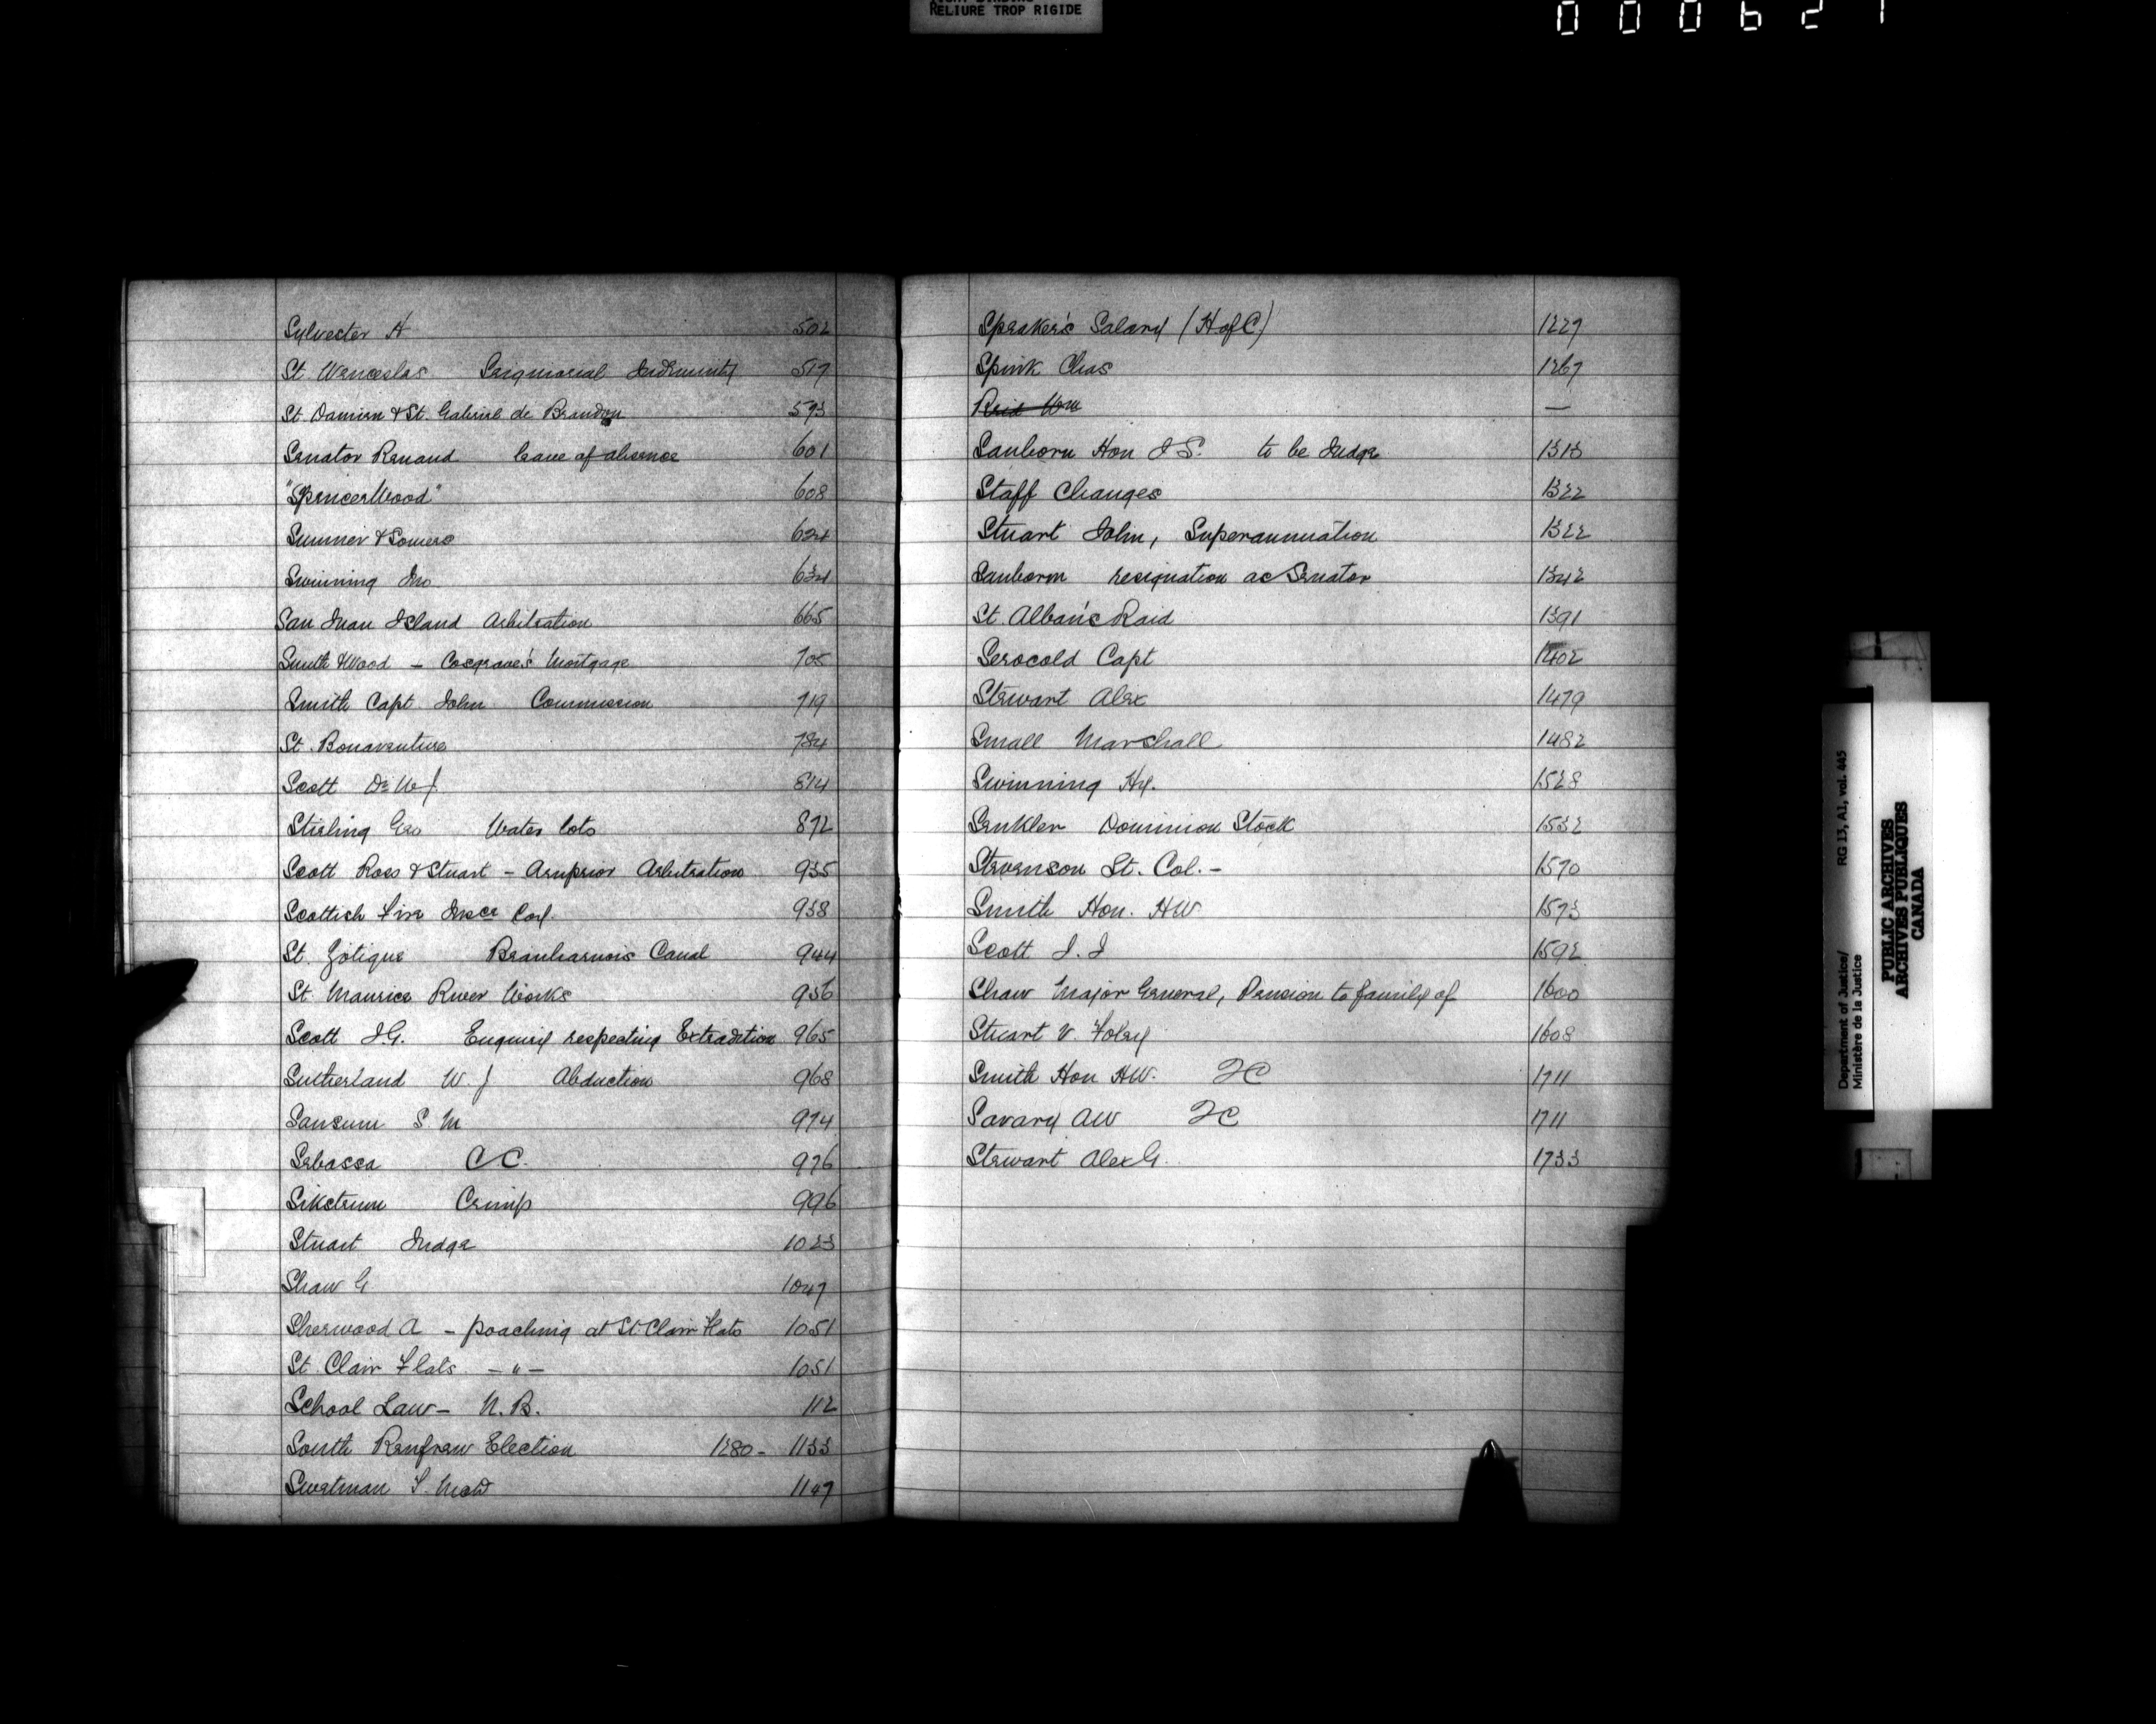 RELIURE TROP RIGIDE
000627
Sylvester H 502
St. Wenceslas Seigniorial Indemnity 517
St. Damien & St. Gabriel de Brandon 593
Senator Renaud leave of absence 601
"SpencerWood" 608
Sumner & Somers 624
Swinning Jno 634
San Juan Island Arbitration 665
Smith & Wood - Cosgrave's Mortgage 705
Smith Capt. John Commission 719
St. Bonaventure 784
Scott Dr W J. 814
Stirling Geo Water lots 872
Scott Ross & Stuart - Arnprior Arbitration 935
Scottish Fire Insce Coy. 938
St. Zotique Beauharnois Canal 944
St. Maurice River Works 956
Scott J.G. Enquiry respecting Extradition 965
Sutherland W. J Abduction 968
Sansum S M 974
Sebassa C C. 976
Sikstrum Crimp 996
Stuart Judge 1023
Shaw G 1047
Sherwood A - poaching at St Clair Flats 1051
St. Clair Flats - " - 1051
School Law - N. B. 112
South Renfrew Election 1280 - 1133
Swetman S. 1147
Speaker's Salary (H of C) 1227
Spink Chas 1267
Reid Wm —
Sanborn Hon J S. to be Judge 1313
Staff Changes 1322
Stuart John, Superannuation 1322
Sanborn resignation as Senator 1342
St. Alban's Raid 1391
Serocold Capt 1402
Stewart Alex 1479
Small Marshall 1482
Swinning Hy. 1528
Senkler Dominion Stock 1532
Stevenson Lt. Col. - 1570
Smith Hon. HW 1573
Scott J. J 1592
Shaw Major General, Pension to family of 1600
Stuart v. Foley 1608
Smith Hon HW. QC 1711
Savary AW QC 1711
Stewart Alex G. 1733
Department of Justice/ RG 13, A1, vol. 445
Ministère de la Justice
PUBLIC ARCHIVES
ARCHIVES PUBLIQUES
CANADA